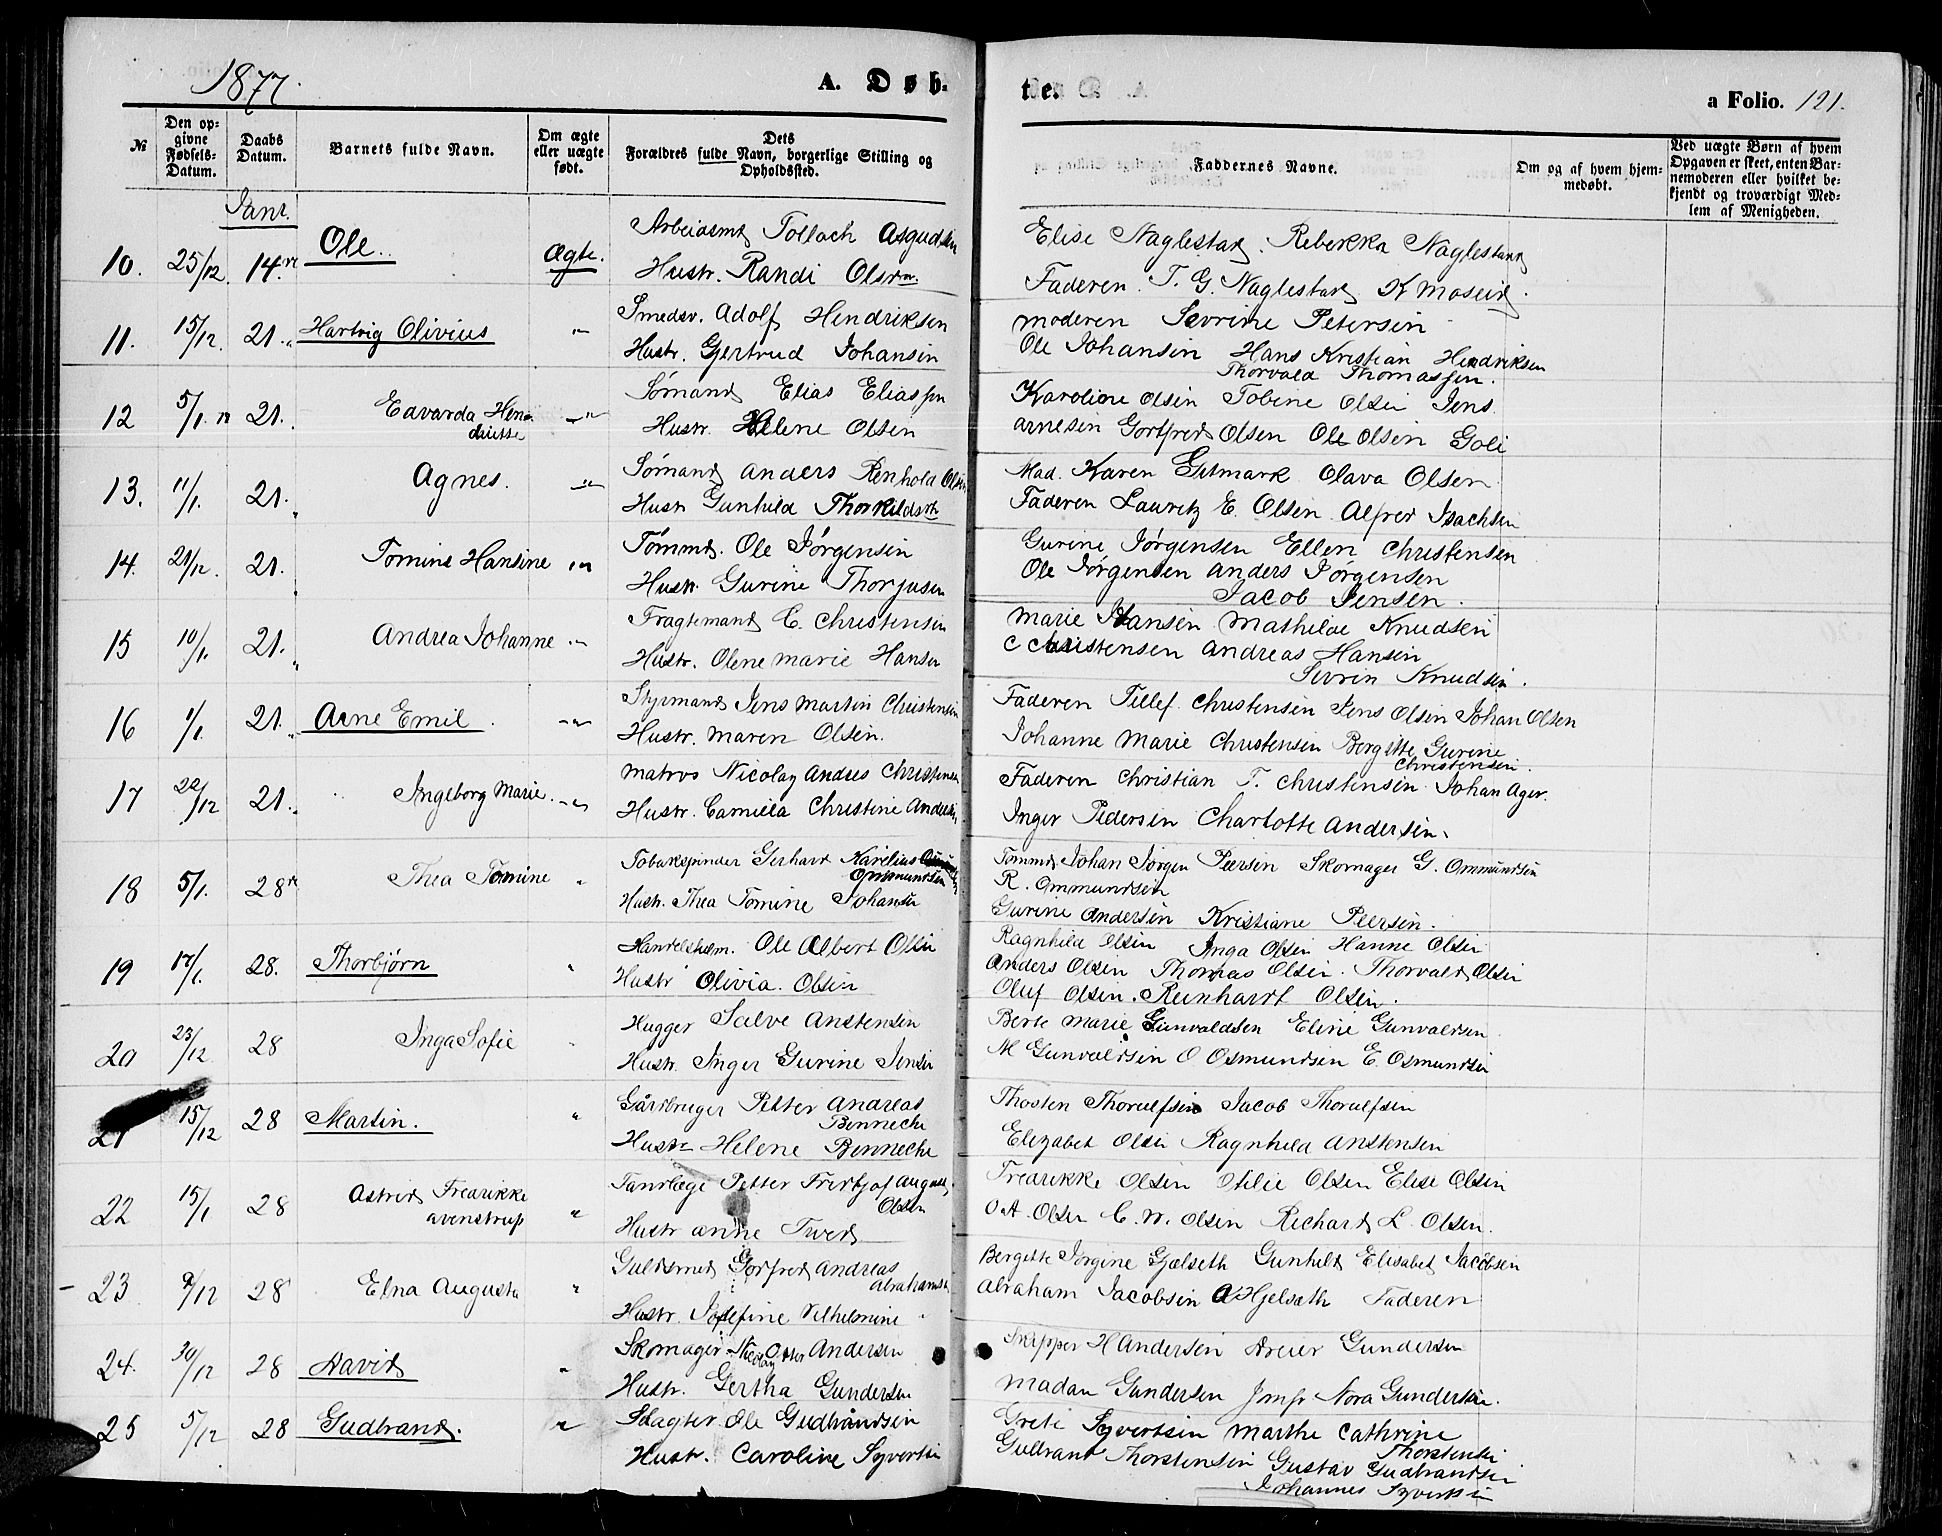 1877.
A. Døb-
te.
a Folio. 121.
№
Den op-
givne
Fødsels-
Datum.
Daabs
Datum.
Barnets fulde Navn.
Om ægte
eller uægte
født.
Dets
Forældres fulde Navn, borgerlige Stilling og
Opholdssted.
Faddernes Navne.
Om og af hvem hjem-
medøbt.
Ved uægte Børn af hvem
Opgaven er skeet, enten Bar-
nemoderen eller hvilket be-
kjendt og troværdigt Med-
lem af Menigheden.
Janr.
10. 25/12. 14. Ole. Ægte.
Arbeidsmd Tollach Asgudsen
Hustr. Randi Olsen
Elise Naglestad. Rebekka Naglestad
Faderen. T. G. Naglestad K Moseid.
11. 15/12. 21. Hartvig Olivius "
Smedsv. Adolf Hendriksen
Hustr. Gjertrud Johansen
Moderen Sevrine Petersen
Ole Johansen Hans Kristian Hendriksen
Thorvald Thomassen.
12 5/1. 21. Edvarda Hen-
driette "
Sømand Elias Eliassen
Hustr. Helene Olsen
Karoline Olsen Tobine Olsen Jens
Arnesen Gotfred Olsen Ole Olsen Goli
13. 11/1. 21. Agnes. "
Sømand Anders Renhold Olsen
Hustr Gunhild Thorkildsen
Mad. Karen Gitmark Olava Olsen
Faderen Lauritz E. Olsen. Alfred Isachsen
14. 21/12. 21. Tomine Hansine "
Tømmd. Ole Jørgensen
Hustr. Gurine Thorjusen
Gurine Jørgensen Ellen Christensen
Ole Jørgensen Anders Jørgensen
Jacob Jensen.
15 10/1. 21. Andrea Johanne "
Fragtemand C. Christensen
Hustr. Olene Marie Hansen
Marie Hansen Mathilde Knudsen
C Christensen Andreas Hansen
Sevrin Knudsen.
16 1/1. 21. Arne Emil. "
Styrmand Jens Martin Christensen
Hustr. Maren Olsen.
Faderen Tellef Christensen Jens Olsen Johan Olsen
Johanne Marie Christensen Bergitte Gurine
Christensen.
17 22/12 21. Ingeborg Marie. "
Matros Nicolay Andres Christensen
Hustr. Camilla Christine Andersen
Faderen Christian T. Christensen Johan Ager.
Inger Pedersen Charlotte Andersen.
18 5/1. 28 Thea Tomine "
Tobakspinder Gerhard Karelius
Ommundsen
Hustr. Thea Tomine Johansen
Tømmd. Johan Jørgen Peersen Skomager G. Ommundsen
R. Ommundsen
Gurine Andersen Kristiane Peersen.
19 17/1. 28. Thorbjørn "
Handelsholm. Ole Albert Olsen
Hustr Olivia. Olsen
Ragnhild Olsen Inga Olsen Hanne Olsen
Anders Olsen Thomas Olsen. Thorvald Olsen
Oluf Olsen. Reinhardt Olsen.
20 23/12 28 Inga Sofie
Hugger Salve Anstensen
Hustr. Inger Gurine Jensen
Berte Marie Gunvaldsen Eline Gunvaldsen
M Gunvaldsen O Osmundsen E. Osmundsen
21 15/12 28 Martin. "
Gårdbruger Petter Andreas
Benneche
Hustr Helene Benneche
Thosten Thorulfsen Jacob Thorulfsen
Elizabet Olsen Ragnhild Anstensen
22 15/1 28 Astrid Fredrikke
Avenstrup "
Tandlæge Petter Fredtjof August
Olsen
Hustr Anne Tved
Fredrikke Olsen Otilie Olsen Elise Olsen
O.A. Olsen C. W. Olsen Richard L. Olsen.
23 9/12 28 Elna Augusta "
Guldsmed Gotfred Andreas
Abrahamsen
Hustr. Josefine Vilhelmine
Bergitte Jørgine Gjelseth Gunhild Elisabet Jacobsen
Abraham Jacobsen A Hjelseth Faderen
24. 30/12 28 David "
Skomager Nicolay Otter Andersen
Hustr. Gertha Gundersen
Skipper H Andersen Dreier Gundersen
Madam Gundersen Jmfr Nora Gundersen.
25 5/12 28 Gudbrand. "
Slagter Ole Gudbrandsen
Hustr. Caroline Syvertsen
Grete Syvertsen Marthe Cathrine
Thorstensen
Gulbrand Thorstensen Gustav Gudbrandsen
Johannes Syvertsen